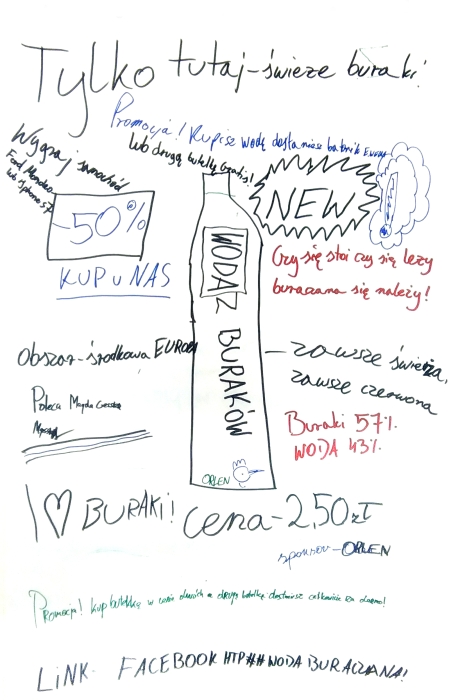 Tylko tutaj - świeże buraki!
Promocja! Kupisz wodę dostaniesz batonik
lub drugą butelkę gratis!
Wygraj samochód
Ford Mondeo
lub iphone 5?
-50%
KUP u NAS
NEW
Czy się stoi czy się leży
buraczana się należy!
WODA Z BURAKÓW
ORLEN
Obszar - środkowa EUROPA
Poleca Magda
- zawsze świeża,
zawsze czerwona
Buraki 57%
WODA 43%
I ♡ BURAKI!
cena - 2,50 zł
sponsor - ORLEN
Promocja! Kup butelkę w cenie dwóch a drugą butelkę dostaniesz całkowicie za darmo!
LiNK - FACEBOOK HTP## WODA BURACZANA!